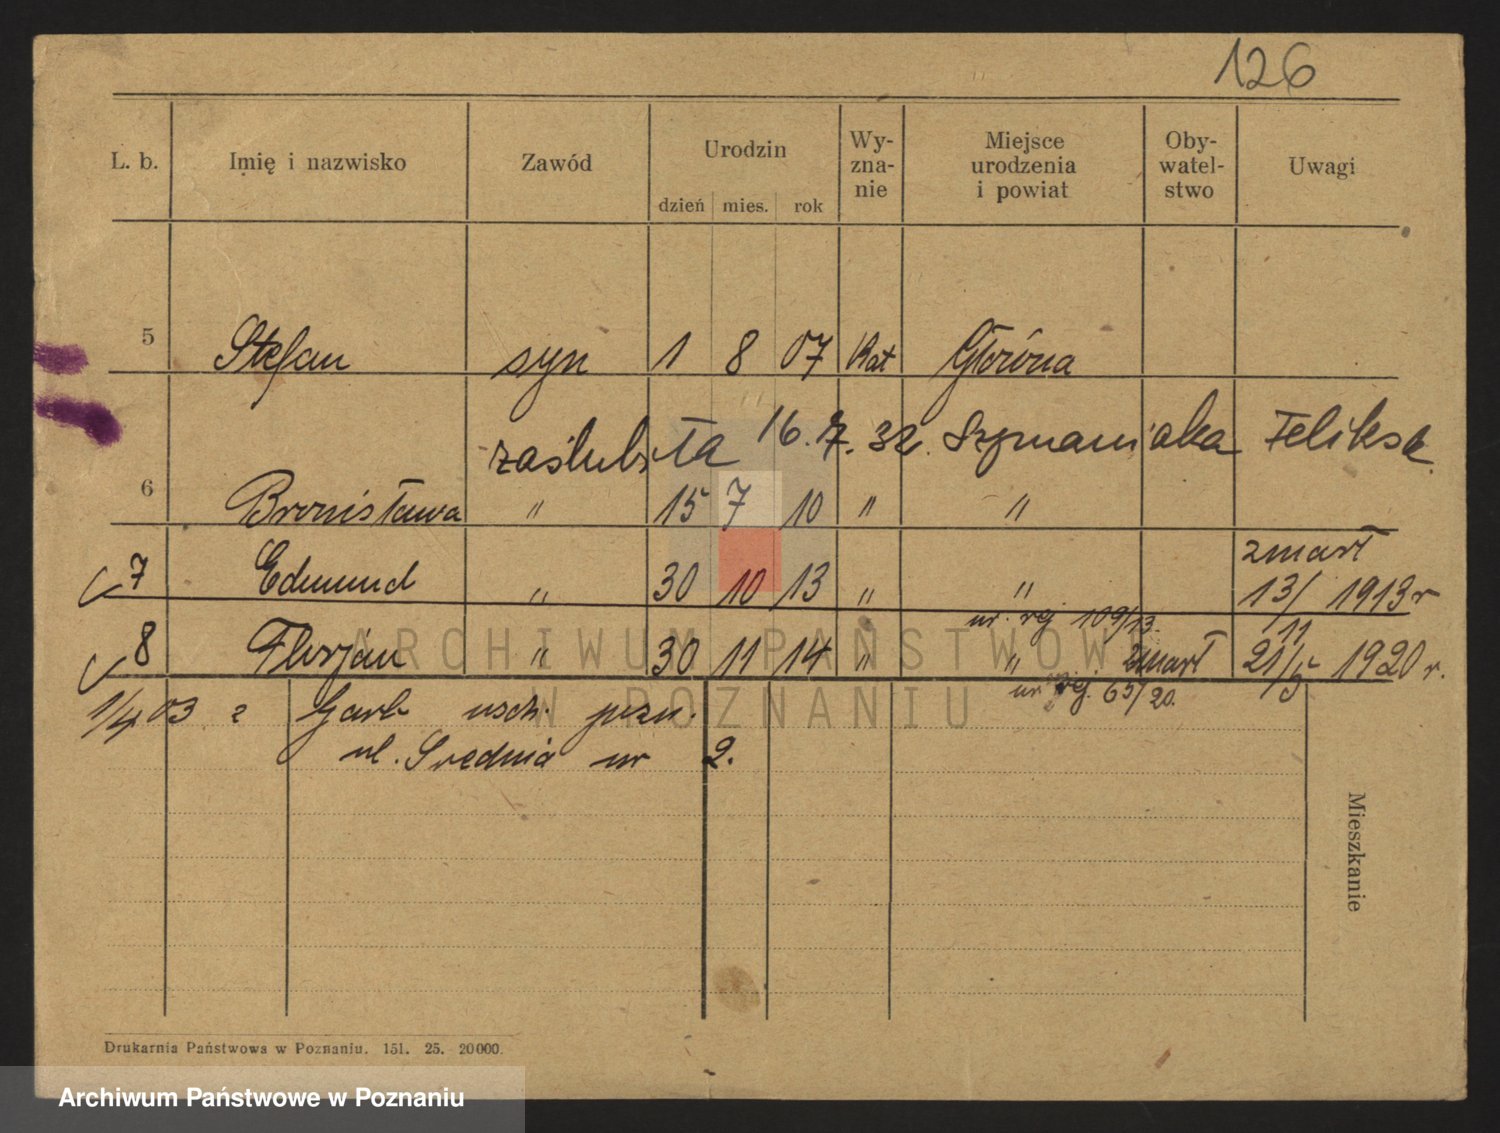 126
L. b. Imię i nazwisko Zawód Urodzin Wy-zna-nie Miejsce urodzenia i powiat Oby-watel-stwo Uwagi
dzień mies. rok
5 Stefan syn 1 8 07 Kat Główna
zaślubiła 16. 7. 32. Szymaniaka Feliksa
6 Bronisława " 15 7 10 " "
zmarł
7 Edmund " 30 10 13 " " 13/11 1913 r
nr. rej 109/13.
8 Florjan " 30 11 14 " " zmarł 21/5 1920 r.
nr rej. 65/20.
1/4 03 z Garb wsch. pozn.
ul. Średnia nr 2.
Mieszkanie
ARCHIWUM PAŃSTWOWE
W POZNANIU
Drukarnia Państwowa w Poznaniu. 151. 25. 20000.
Archiwum Państwowe w Poznaniu